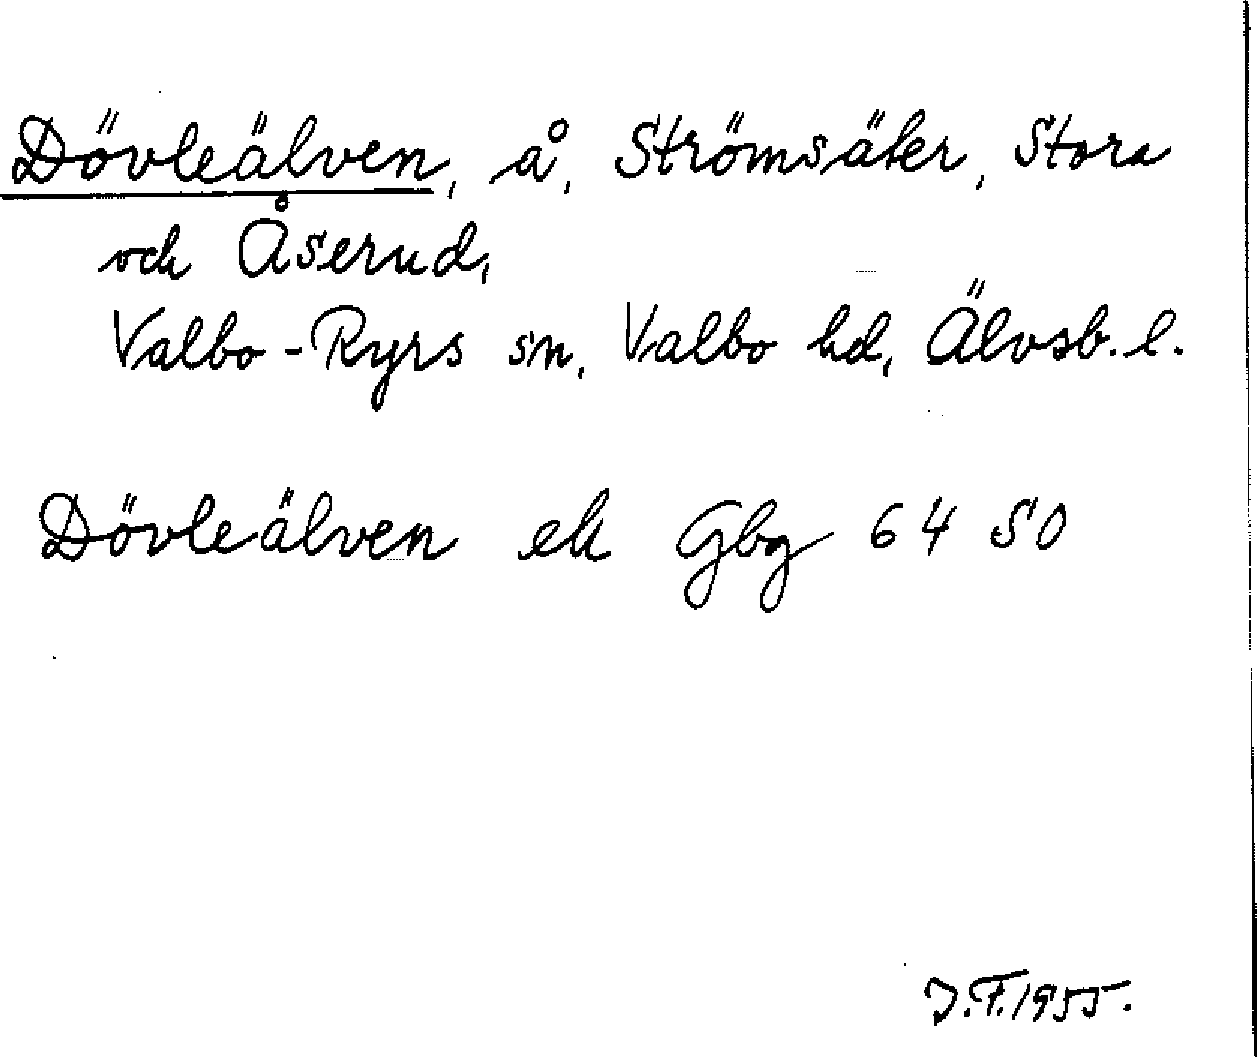 Dövleälven, å, Strömsäter, Stora
och Åserud,
Valbo-Ryrs sn, Valbo hd, Älvsb. l.
Dövleälven ek Gbg 64 SO
J.F. 1955.